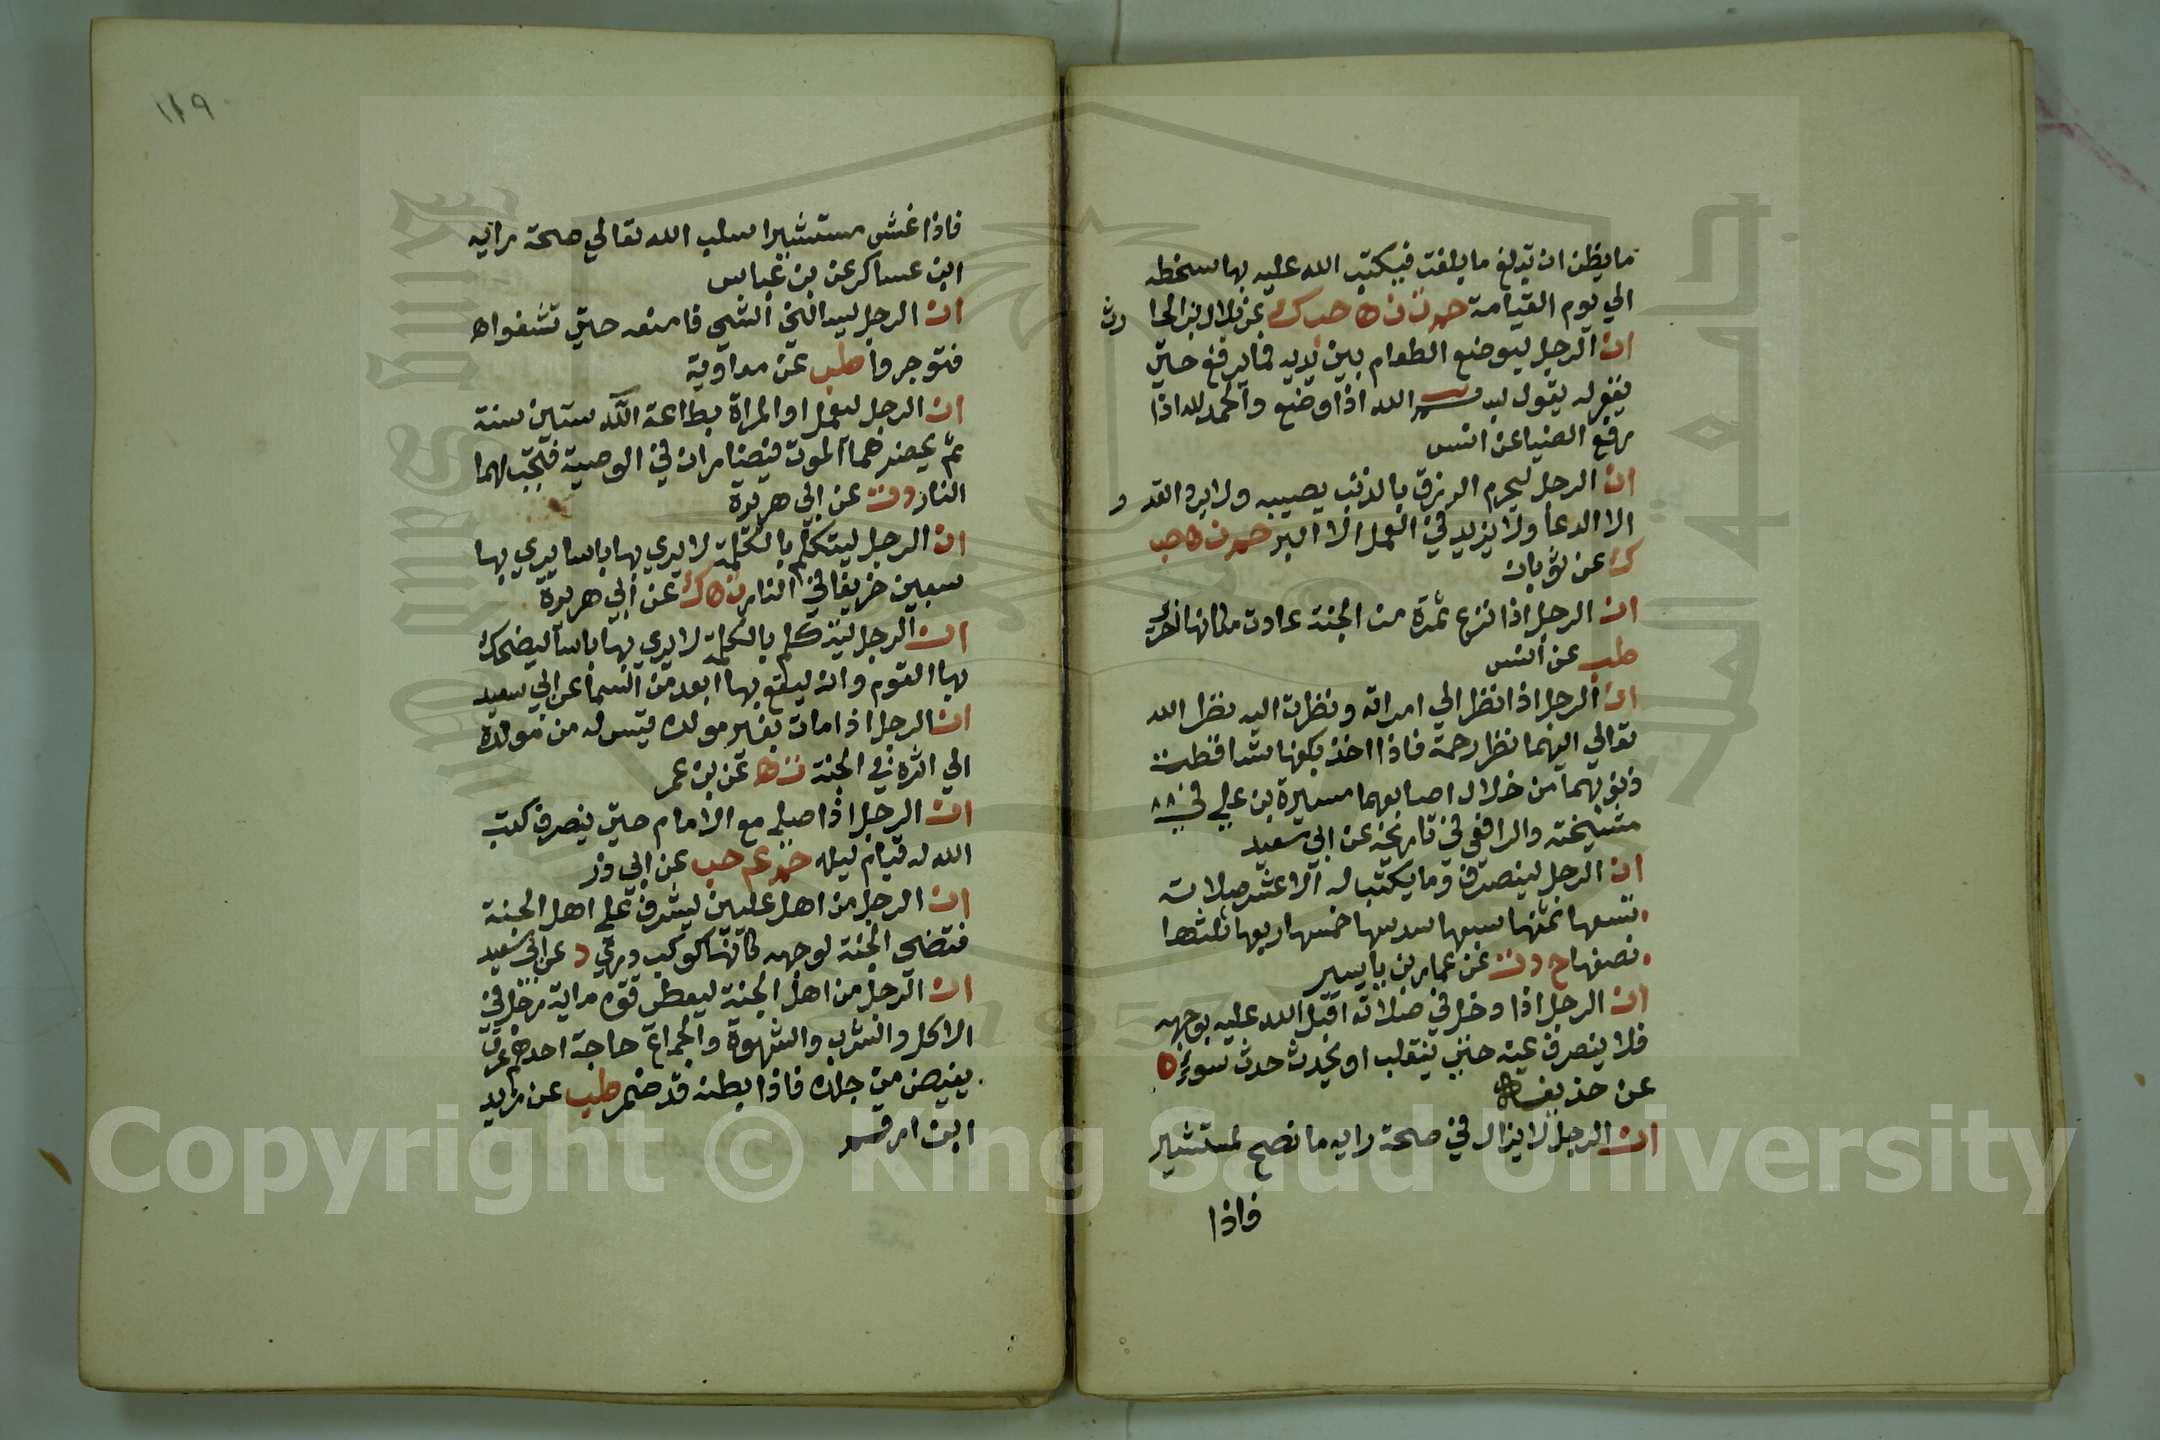 ما يظن ان تبلغ ما بلغت فيكتب الله عليه بها سخطه
الي يوم القيامة حم ت ن ه حب ك عن بلال بن الحا رث
ان الرجل ليوضع الطعام بين يديه فما يرفع حتي
يغفر له يقول بسم الله اذا وضع والحمد لله اذا
رفع الضيا عن انس
ان الرجل ليحرم الرزق بالذنب يصيبه ولا يرد القد ر
الا الدعا ولا يزيد في العمل الا البر حم ن ه حب
ك عن ثوبان
ان الرجل اذا نزع ثمرة من الجنة عادت مكانها اخري
طب عن انس
ان الرجل اذا نظر الي امراته ونظرت اليه نظر الله
تعالي اليهما نظر رحمة فاذا اخذ بكفها تساقطت
ذنوبهما من خلال اصابعهما ميسرة بن علي في
مشيخته والرافعي في تاريخه عن ابي سعيد
ان الرجل لينصرف وما يكتب له الا عشر صلاته
تسعها ثمنها سبعها سدسها خمسها ربعها ثلثها
نصفها ح د ت عن عمار بن ياسير
ان الرجل اذا دخل في صلاته اقبل الله عليه بوجهه
فلا ينصرف عنه حتي ينقلب او يحدث حدث سوء ه
عن حذيفة
ان الرجل لا يزال في صحة رايه ما نصح لمستشير
فاذا
١١٩
فاذا غش مستشيرا سلب الله تعالي صحة رايه
ابن عساكر عن بن عباس
ان الرجل ليسالني الشي فامنعه حتي تشفعوا
فتوجروا طب عن معاوية
ان الرجل ليعمل او المراة بطاعة الله ستين سنة
ثم يحضرهما الموت فيضاران في الوصية فتجب لهما
النار د ت عن ابي هريرة
ان الرجل ليتكلم بالكلمة لا يري بها باسا يهوي بها
سبعين خريفا في النار ت ه ك عن ابي هريرة
ان الرجل ليتكلم بالكلمة لا يري بها باسا ليضحك
بها القوم وانه ليقع بها ابعد من السما عن ابي سعيد
ان الرجل اذا مات بغير مولده قيس له من مولده
الي اثره في الجنة ن ه عن بن عمر
ان الرجل اذا صلي مع الامام حتي ينصرف كتب
الله له قيام ليله حم عم حب عن ابي ذر
ان الرجل من اهل عليين ليشرف علي اهل الجنة
فتضي الجنة لوجهه كانها كوكب دري د عن ابي سعيد
ان الرجل من اهل الجنة ليعطي قوة ماية رجل في
الاكل والشرب والشهوة والجماع حاجة احدهم عرق
يفيض من جلده فاذا بطنه قد ضمر طب عن زيد
ابن ارقم
Copyright © King Saud University
جامعة الملك سعود
King Saud University
1957